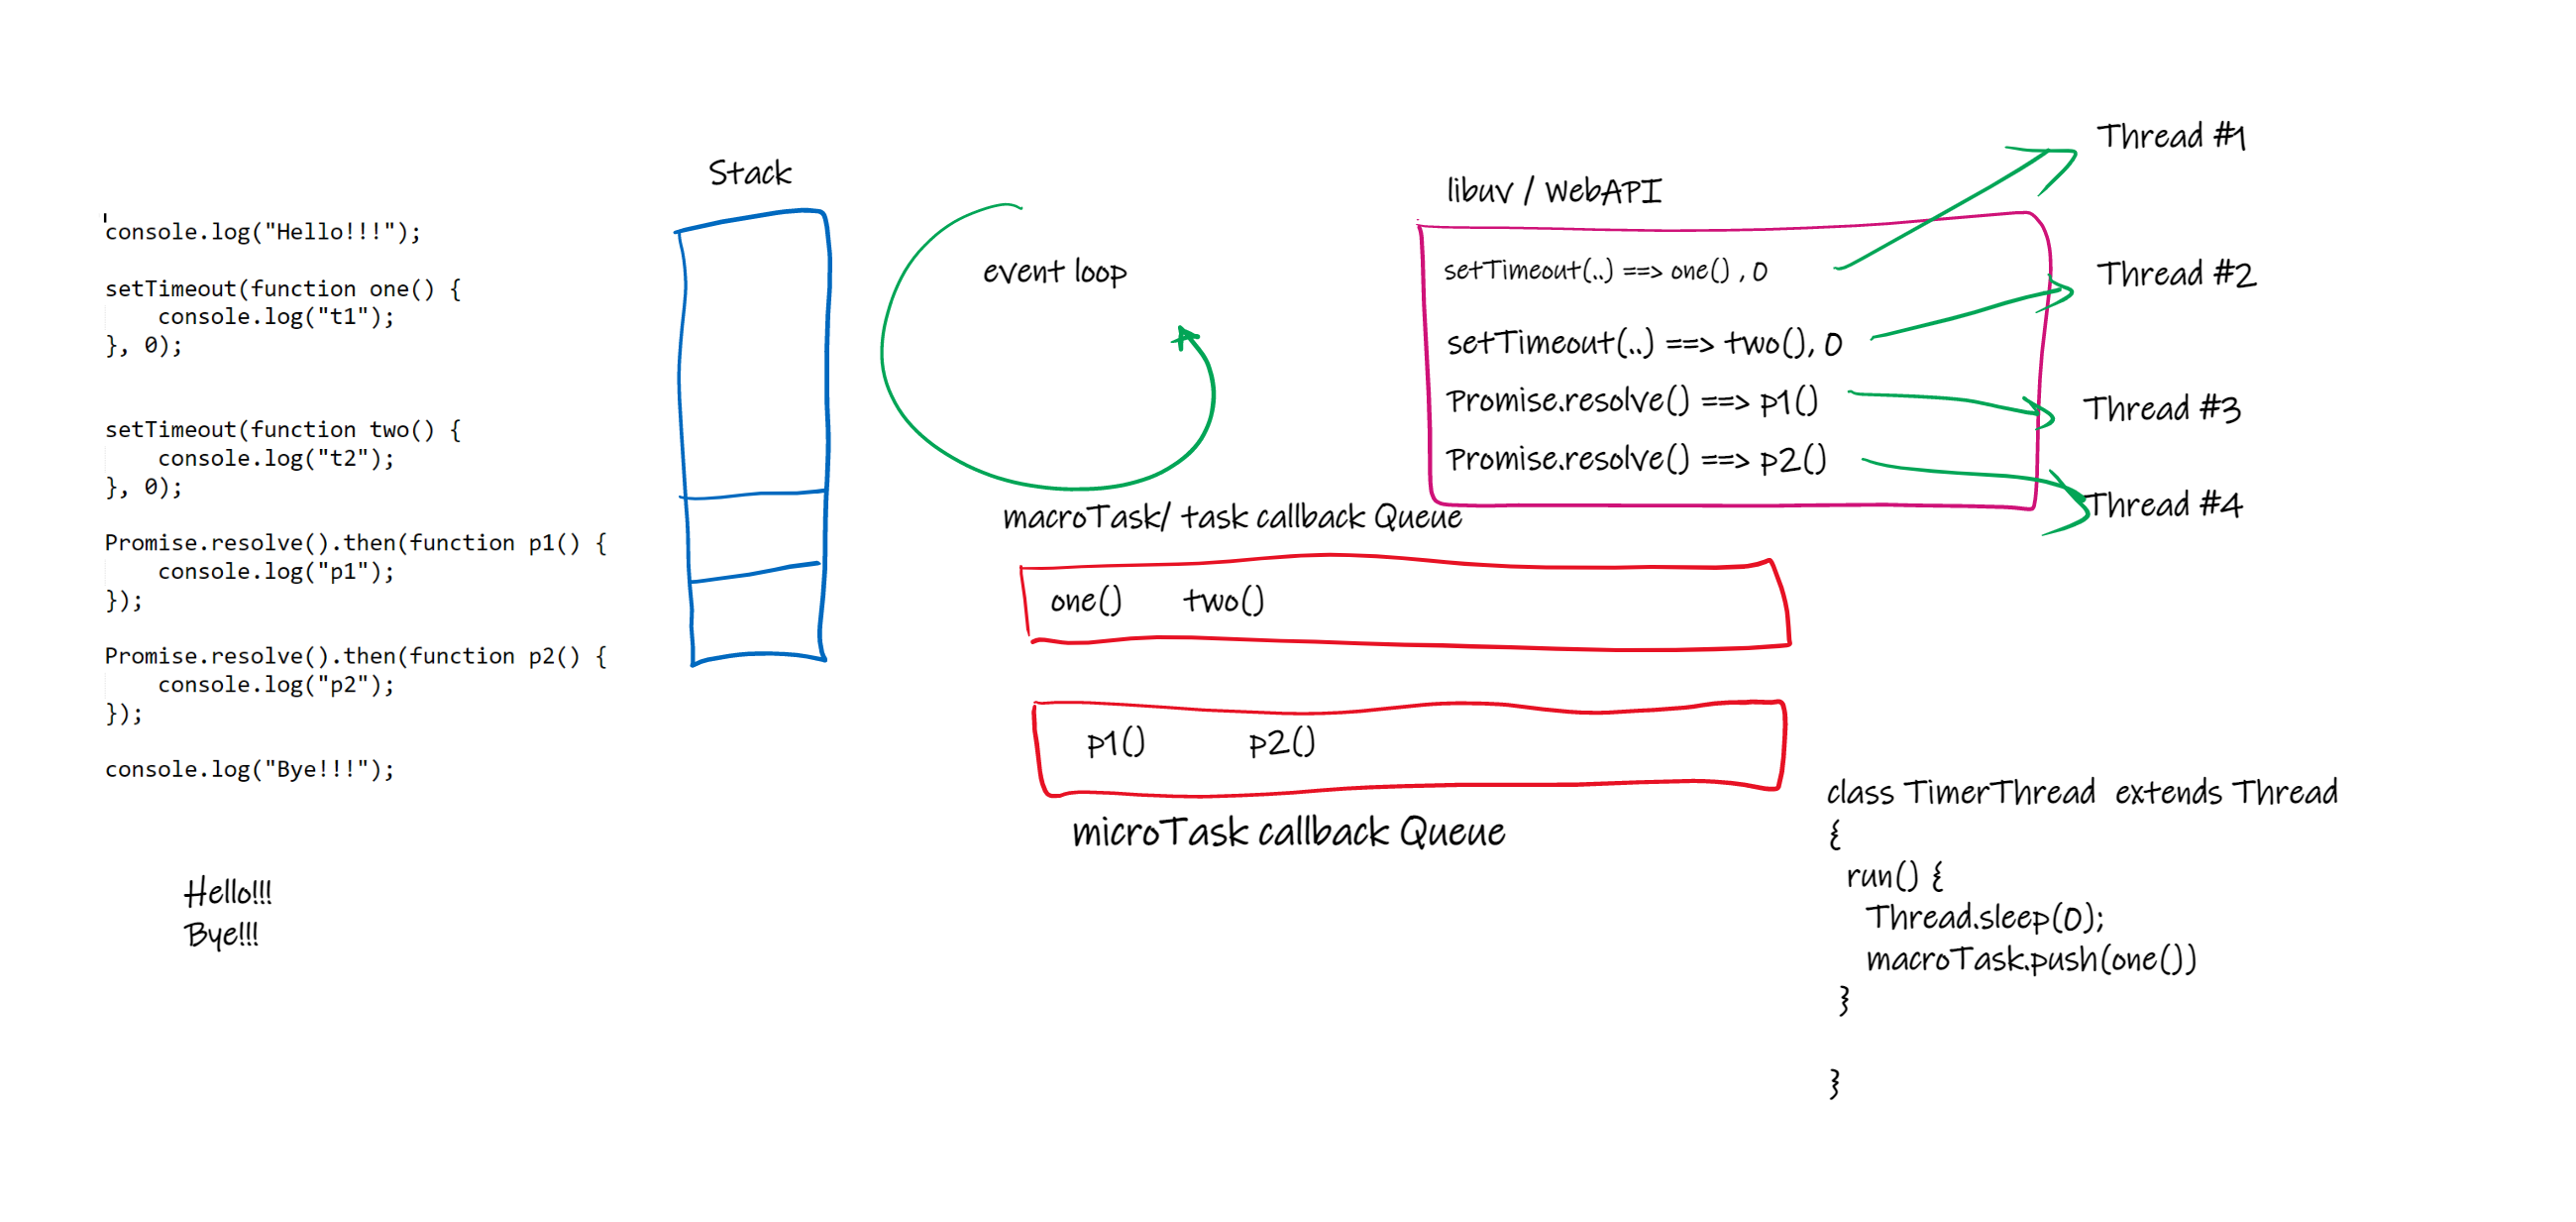 console.log("Hello!!!");
setTimeout(function one() {
    console.log("t1");
}, 0);
setTimeout(function two() {
    console.log("t2");
}, 0);
Promise.resolve().then(function p1() {
    console.log("p1");
});
Promise.resolve().then(function p2() {
    console.log("p2");
});
console.log("Bye!!!");
Hello!!!
Bye!!!
Stack
event loop
libuv / WebAPI
setTimeout(..) ==> one() , 0
setTimeout(..) ==> two(), 0
Promise.resolve() ==> p1()
Promise.resolve() ==> p2()
Thread #1
Thread #2
Thread #3
Thread #4
macroTask/ task callback Queue
one() two()
p1() p2()
microTask callback Queue
class TimerThread extends Thread
{
run() {
Thread.sleep(0);
macroTask.push(one())
}
}